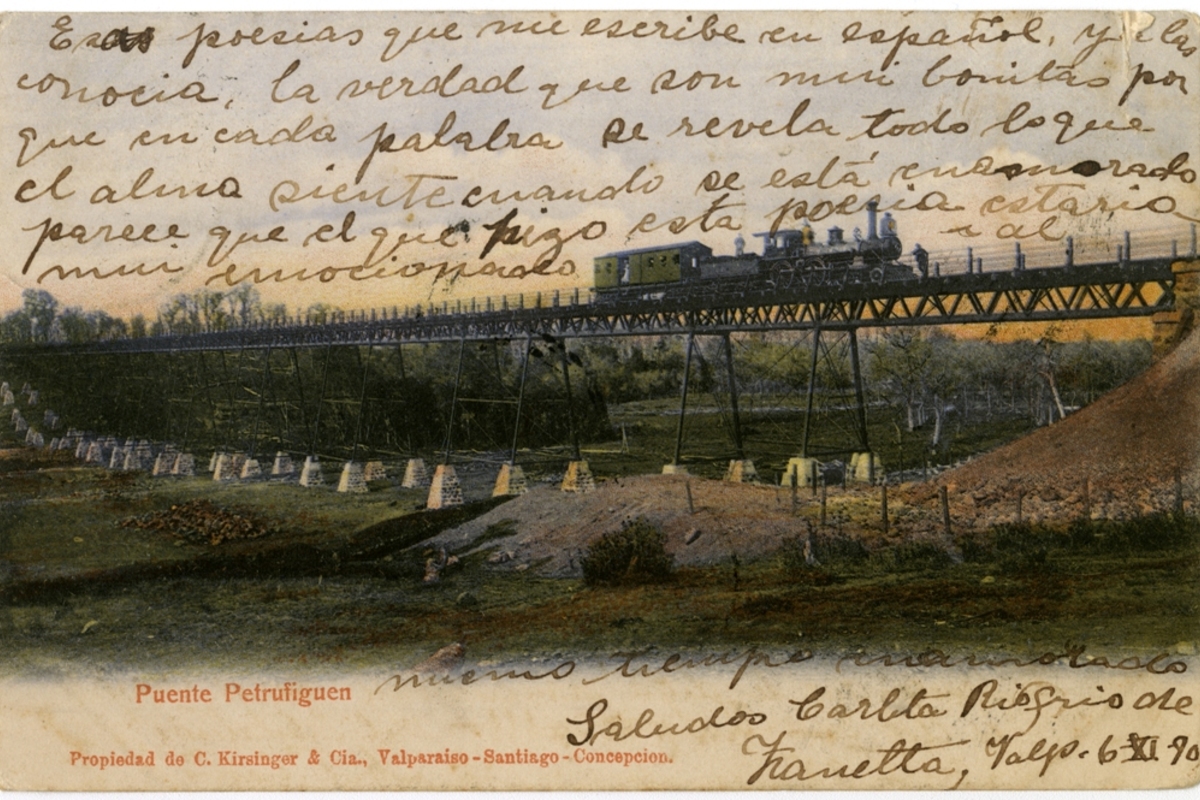 Esas poesias que me escribe en español, ya las
conocia, la verdad que son mui bonitas por
que en cada palabra se revela todo lo que
el alma siente cuando se está enamorado
parece que el que hizo esta poesia estaria
mui emocionado i al
mismo tiempo enamorado
Puente Petrufiguen
Saludos Carlita de
Propiedad de C. Kirsinger & Cia., Valparaiso-Santiago-Concepcion.
Zanetta, Valp. 6 XI